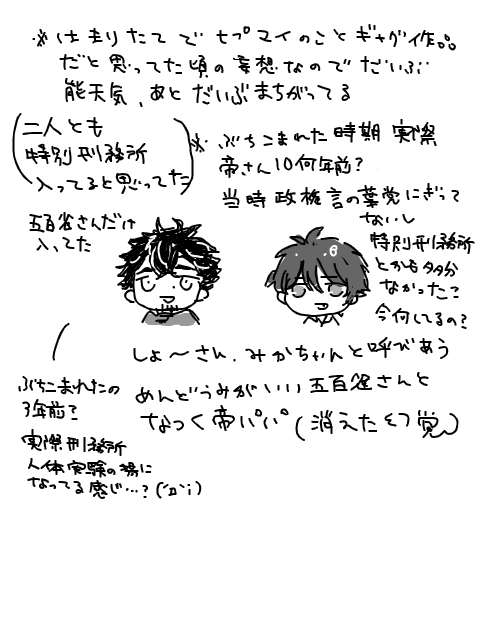 ※はまりたてでヒプマイのことギャグ作品
だと思ってた頃の妄想なのでだいぶ
能天気、あとだいぶまちがってる
(二人とも
特別刑務所
入ってると思ってた)
※ぶちこまれた時期 実際
帝さん10何年前?
当時政権言の葉党にぎって
ないし
特別刑務所
とかも多分
なかった?
今何してるの?
五百雀さんだけ
入ってた
しょ〜さん、みかちゃんと呼びあう
めんどうみがいい五百雀さんと
なつく帝パパ(消えた幻覚)
ぶちこまれたの
3年前?
実際刑務所
人体実験の場に
なってる感じ…?(´д`;)